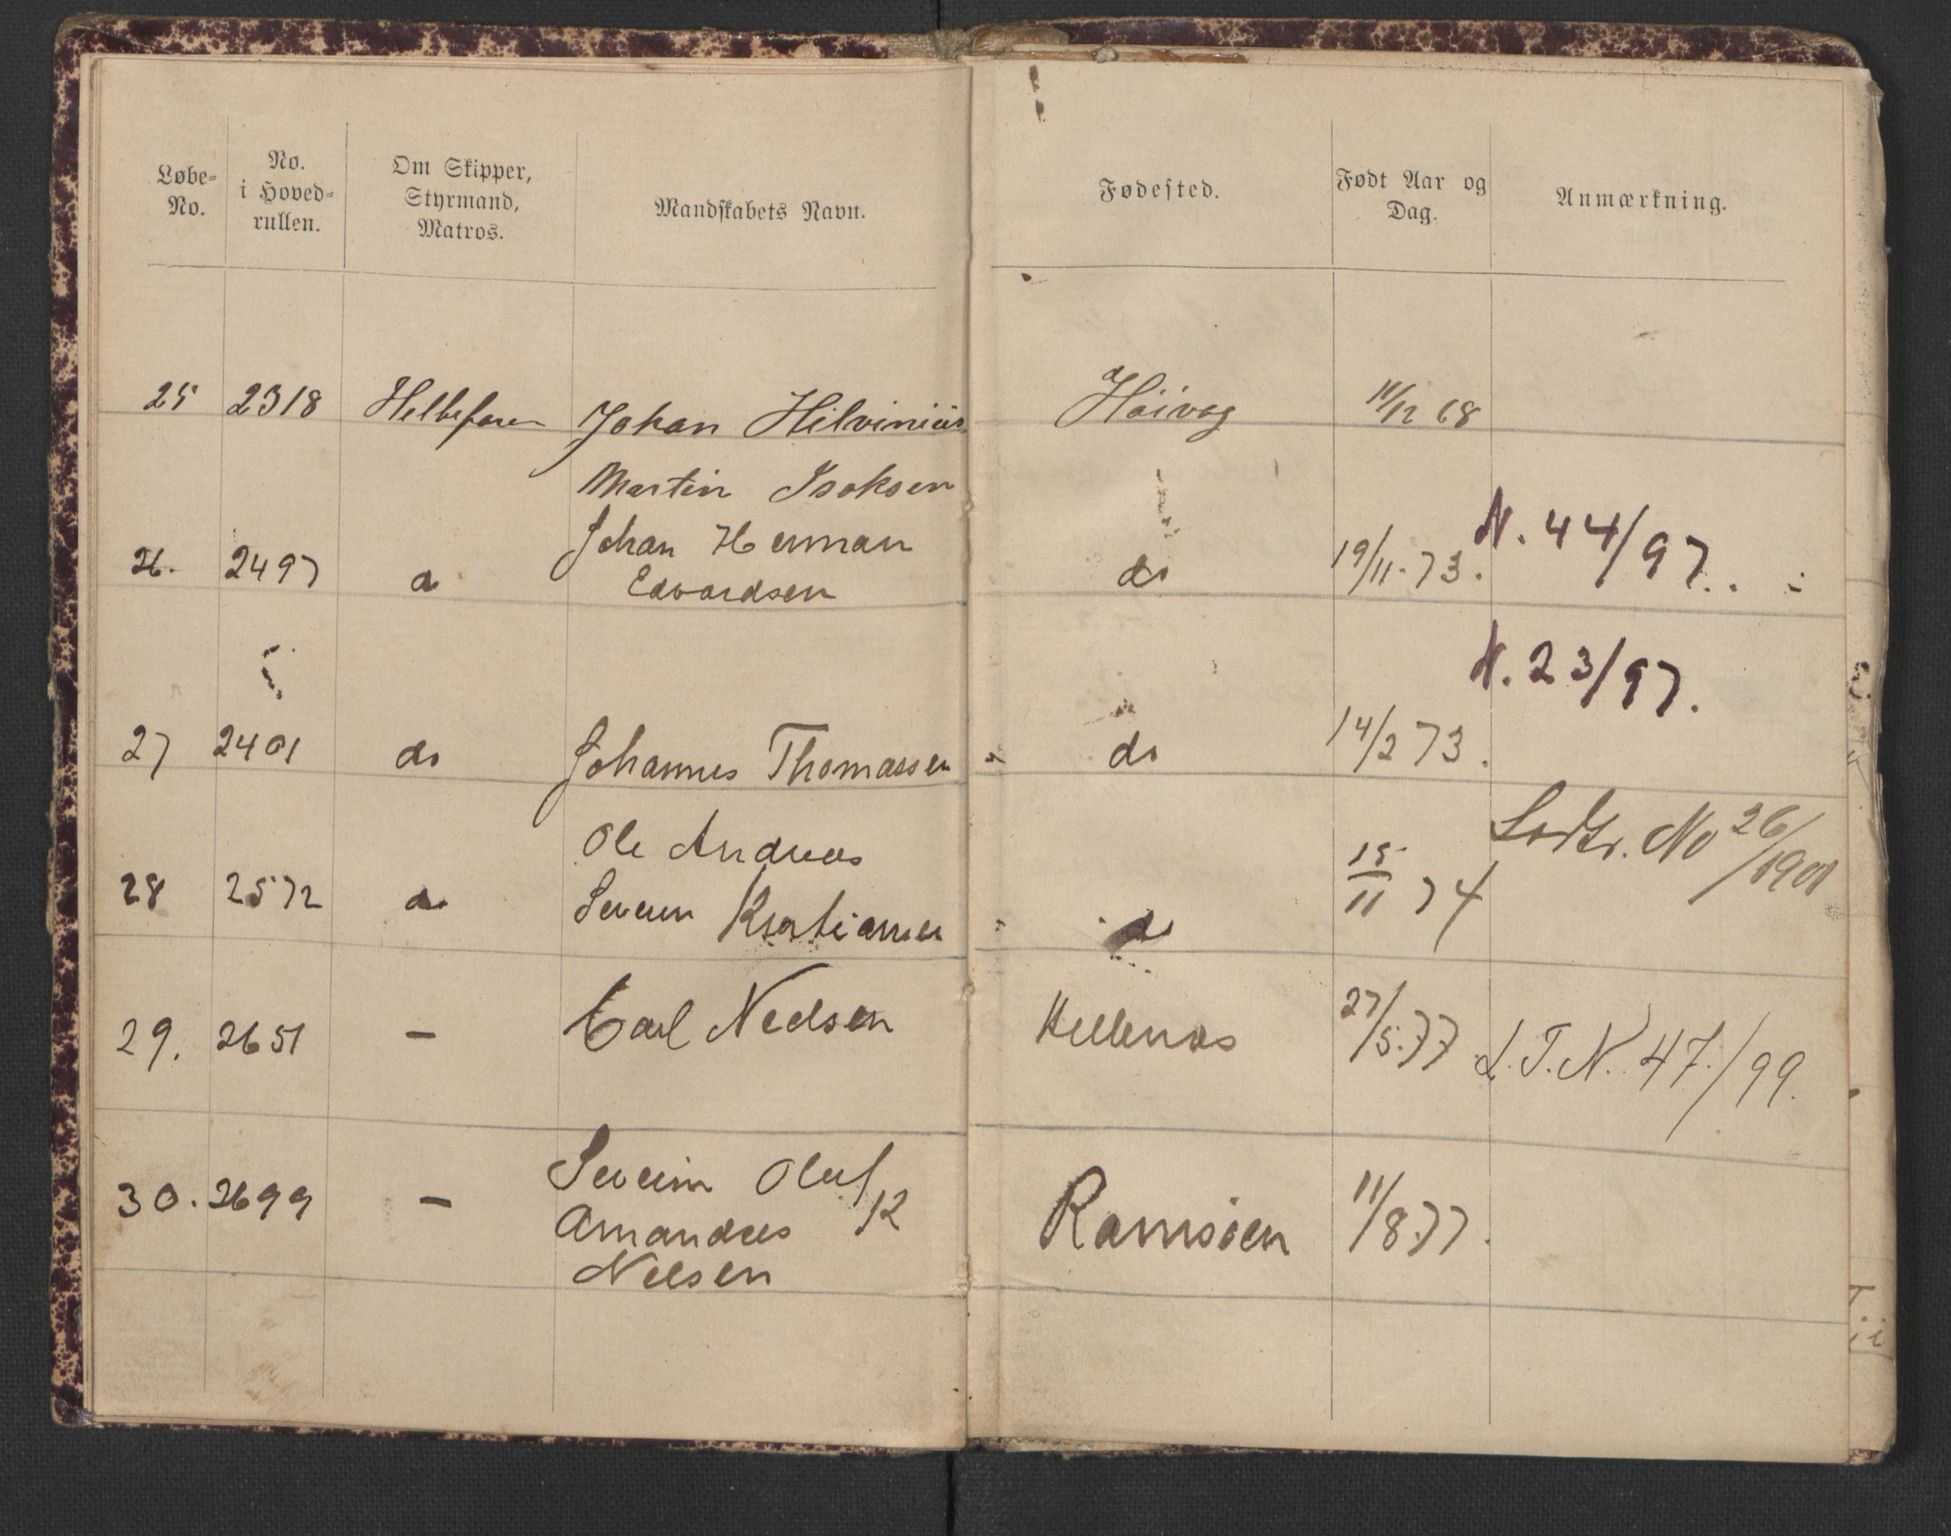 Løbe-No.
No. i Hoved-rullen.
Om Skipper, Styrmand, Matros.
Mandskabets Navn.
Fødested.
Født Aar og Dag.
Anmærkning.
25 2318 Helbefaren Johan Hilvinius Höivag 11/12 68
Martin Isaksen
Johan Herman
26. 2497 do Edvardsen do 19/11.73. N. 44/97.
N. 23/97.
27 2401 do Johannes Thomassen do 14/2 73.
Ole Andreas
28 2572 do Severin Kristiansen do 15/11 74 No 26/1901
29. 2651 — Carl Nielsen Hellenæs 27/5.77 L.T.N. 47./99.
30. 2699 — Severin Oluf
Amandus 12 Ramsöen 11/8.77.
Nielsen